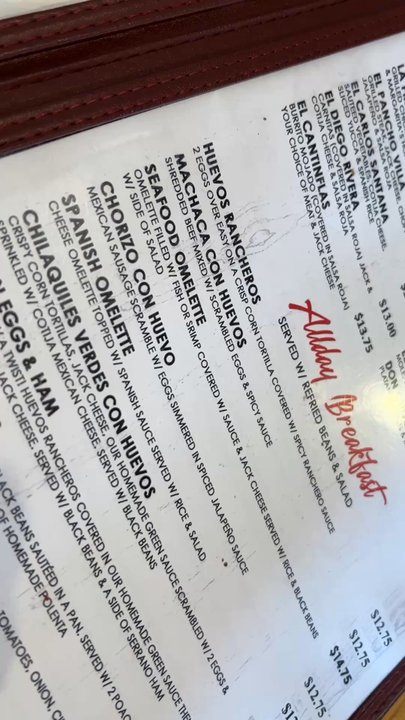 LA
& MA
EL PANCHO VILLA
GRILLED CHICKEN
JAMAICA
EL CARLOS SANTANA
SPICED VEGGIE &
EL DIEGO RIVERA
CARNITAS (COVERED IN SALSA ROJA) JACK &
COTIJA CHEESE & SALSA ROJA
$13.00
EL CANTINFLAS
BURRITO MOJADO (COVERED IN SALSA ROJA)
YOUR CHOICE OF MEAT & JACK CHEESE
$13.75
DON
Allday Breakfast
SERVED W/ REFRIED BEANS & SALAD
HUEVOS RANCHEROS
2 EGGS OVER EASY ON A CRISP CORN TORTILLA COVERED W/ SPICY RANCHERO SAUCE
$12.75
MACHACA CON HUEVOS
SHREDDED BEEF MIXED W/ SCRAMBLED EGGS & SPICY SAUCE
$12.75
SEAFOOD OMELETTE
OMELETTE FILLED W/ FISH OR SRIMP COVERED W/ SAUCE & JACK CHEESE SERVED W/ RICE & BLACK BEANS
W/ SIDE OF SALAD
$14.75
CHORIZO CON HUEVO
MEXICAN SAUSAGE SCRAMBLE W/ EGGS SIMMERED IN SPICED JALAPEÑO SAUCE
$12.75
SPANISH OMELETTE
CHEESE OMELETTE TOPPED W/ SPANISH SAUCE SERVED W/ RICE & SALAD
CHILAQUILES VERDES CON HUEVOS
CRISPY CORN TORTILLAS, JACK CHEESE, OUR HOMEMADE GREEN SAUCE SCRAMBLED W/ 2 EGGS &
SPRINKLED W/ COTIJA MEXICAN CHEESE SERVED W/ BLACK BEANS
EGGS & HAM
A TWIST! HUEVOS RANCHEROS COVERED IN OUR HOMEMADE GREEN SAUCE THE
JACK CHEESE. SERVED W/ BLACK BEANS & A SIDE OF SERRANO HAM
BLACK BEANS SAUTÉED IN A PAN, SERVED W/ 2 POAC
OF HOMEMADE POLENTA
TOMATOES, ONION, CI